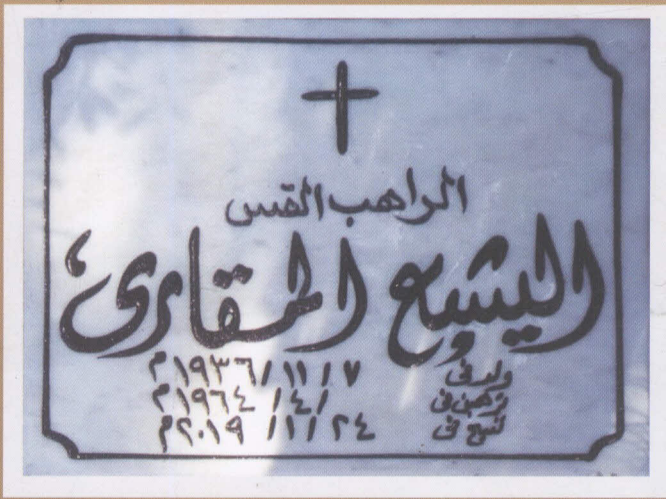 الراهب القس
اليشع المقارى
ولد فى ٧/١١/١٩٣٦م
ترهبن فى /٤/١٩٦٤م
تنيح فى ٢٤/١/٢٠١٩م